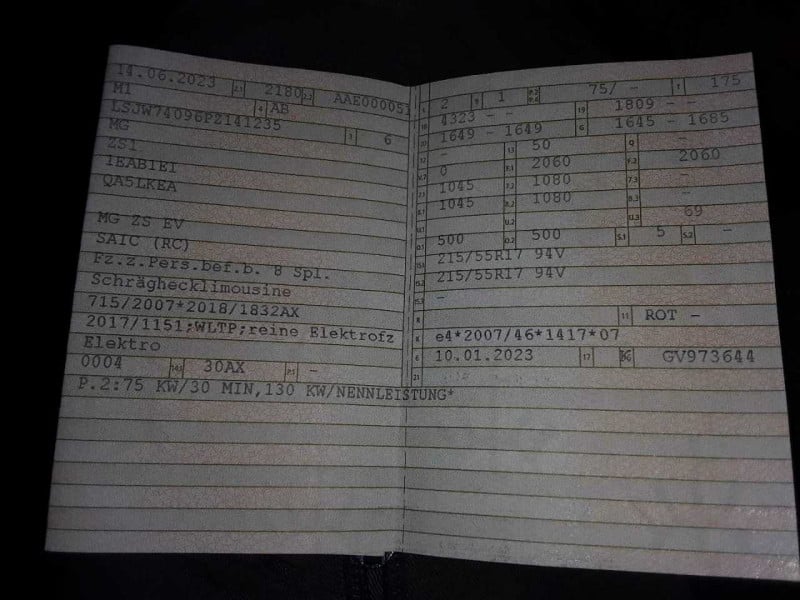 14.06.2023 2.1 2180 2.2 AAE000051
M1 4 AB
LSJW74096PZ141235
MG 3 6
ZS1
1EAB1E1
QA5LKEA
MG ZS EV
SAIC (RC)
Fz.z.Pers.bef.b. 8 Spl.
Schräghecklimousine
715/2007*2018/1832AX
2017/1151;WLTP;reine Elektrofz
Elektro
0004 14.1 30AX P.1 -
P.2:75 KW/30 MIN,130 KW/NENNLEISTUNG*
L 2 9 1 P.2 P.4 75/ - T 175
18 4323 - - 19 1809 - -
20 1649 - 1649 G 1645 - 1685
12 - 13 50 Q -
V.7 0 F.1 2060 F.2 2060
7.1 1045 7.2 1080 7.3 -
8.1 1045 8.2 1080 8.3 -
U.1 U.2 U.3 69
O.1 500 O.2 500 S.1 5 S.2 -
15.1 215/55R17 94V
15.2 215/55R17 94V
15.3 -
R 11 ROT -
K e4*2007/46*1417*07
6 10.01.2023 17 K 16 GV973644
21